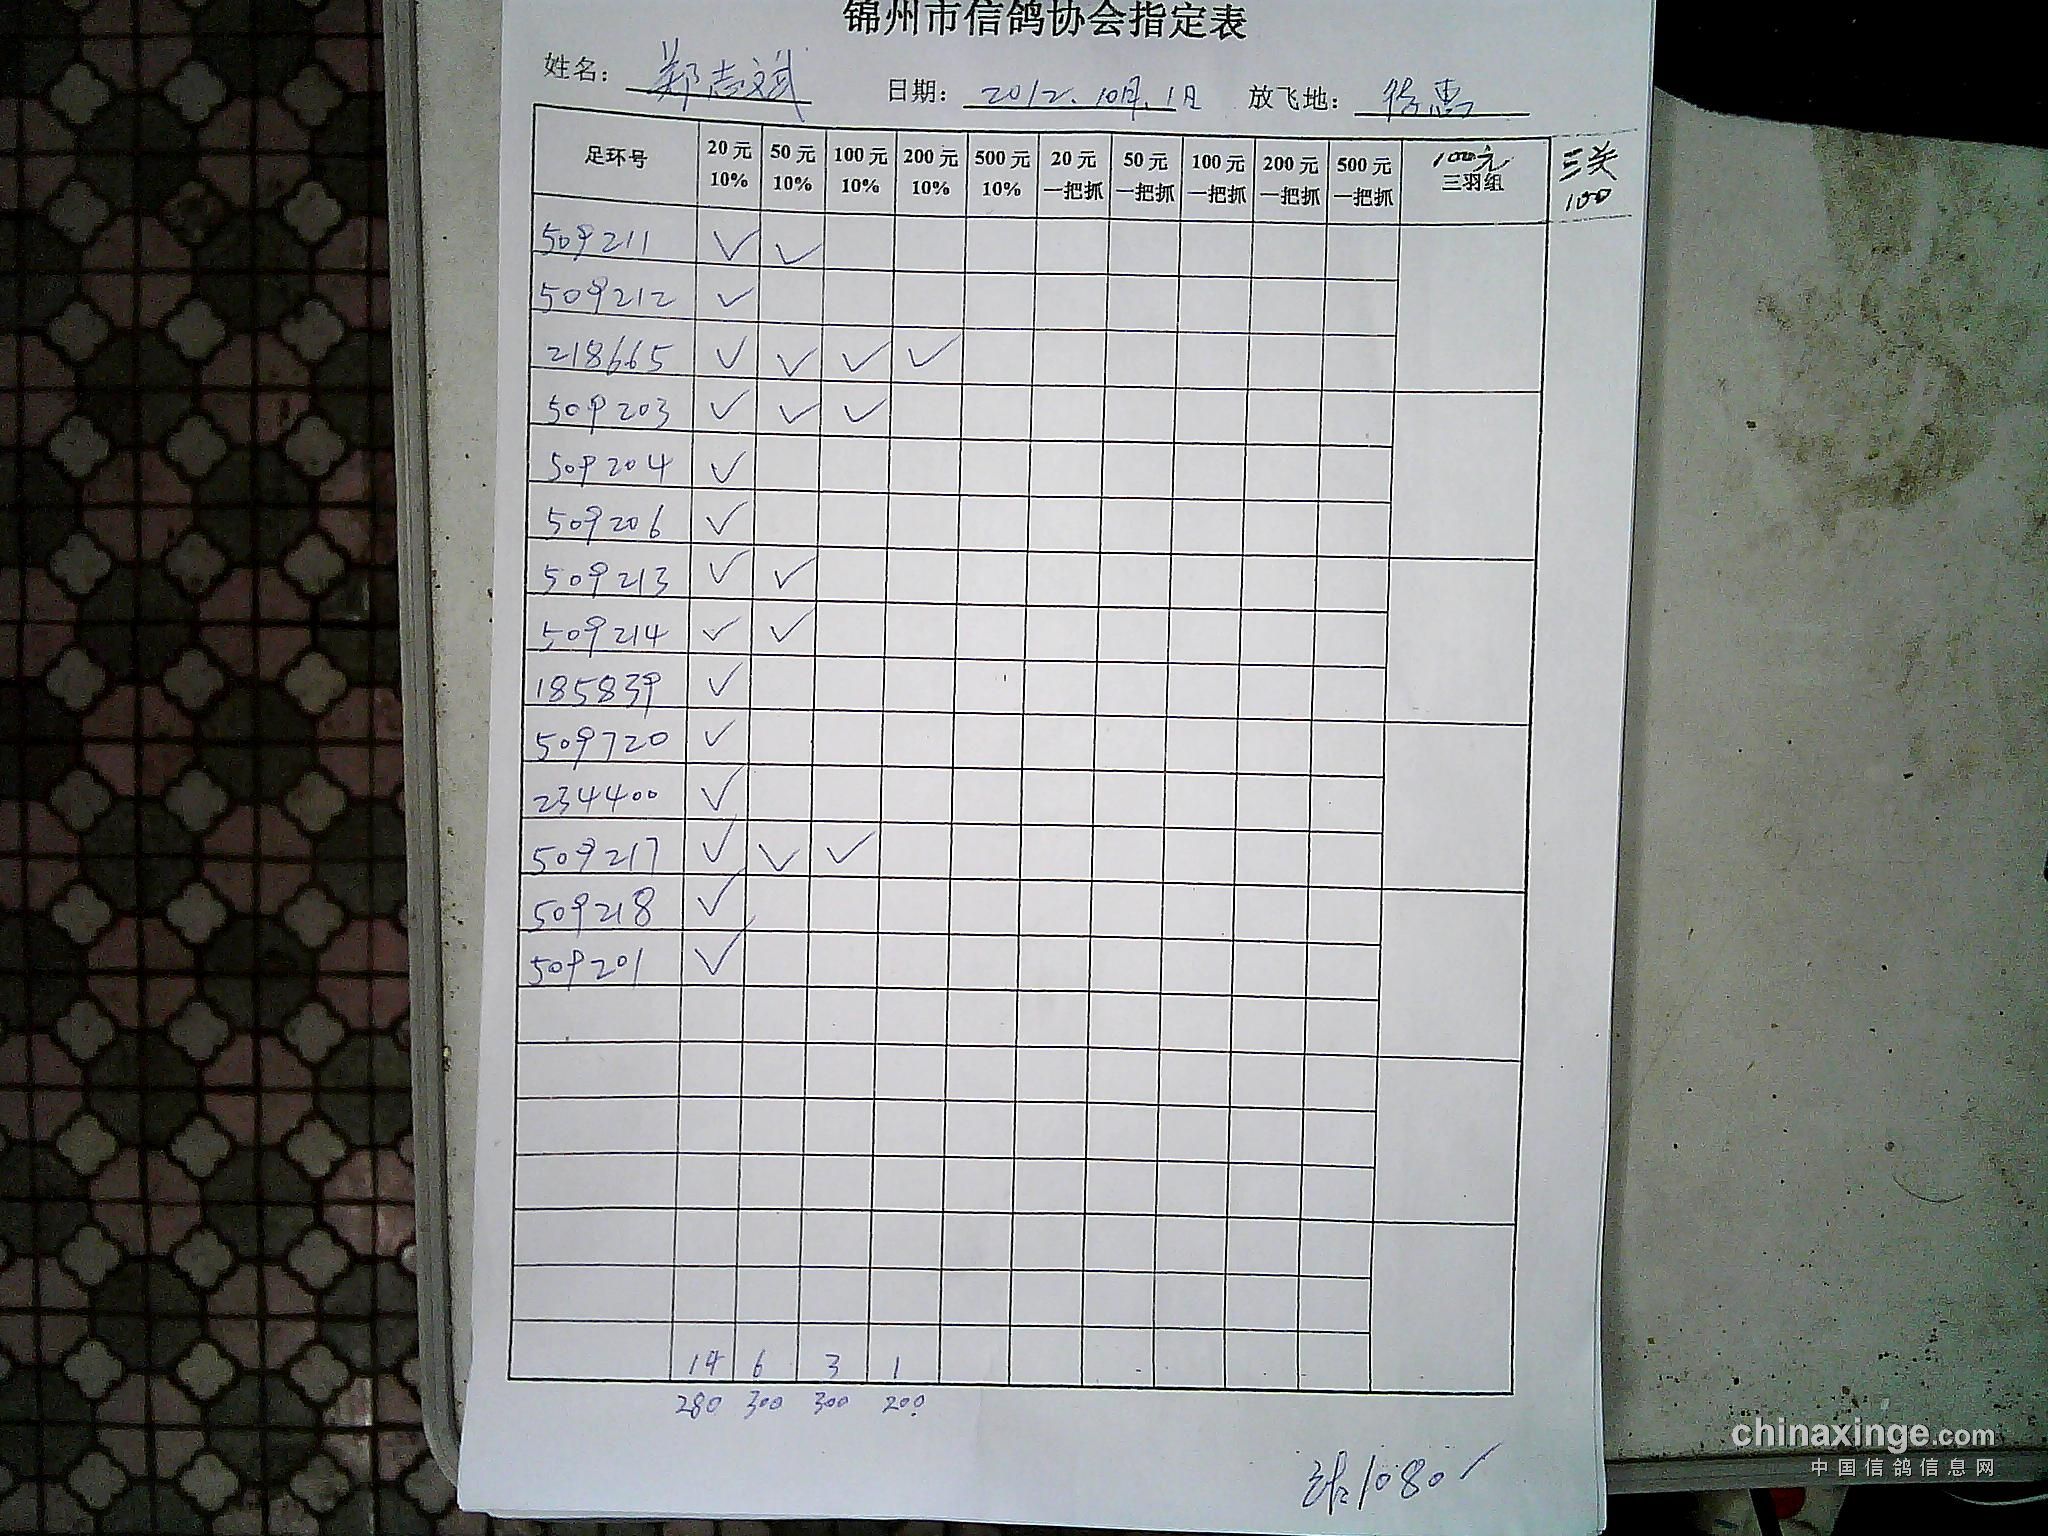 锦州市信鸽协会指定表
姓名： 郑志斌 日期： 2012.10月.1日 放飞地：
足环号 20元 10% 50元 10% 100元 10% 200元 10% 500元 10% 20元 一把抓 50元 一把抓 100元 一把抓 200元 一把抓 500元 一把抓 100元 三羽组 三关 100
509211 ✓ ✓
509212 ✓
218665 ✓ ✓ ✓ ✓
509203 ✓ ✓ ✓
509204 ✓
509206 ✓
509213 ✓ ✓
509214 ✓ ✓
185839 ✓
509720 ✓
234400 ✓
509217 ✓ ✓ ✓
509218 ✓
509201 ✓
14 6 3 1
280 300 300 200
1080 ✓
chinaxinge.com
中国信鸽信息网